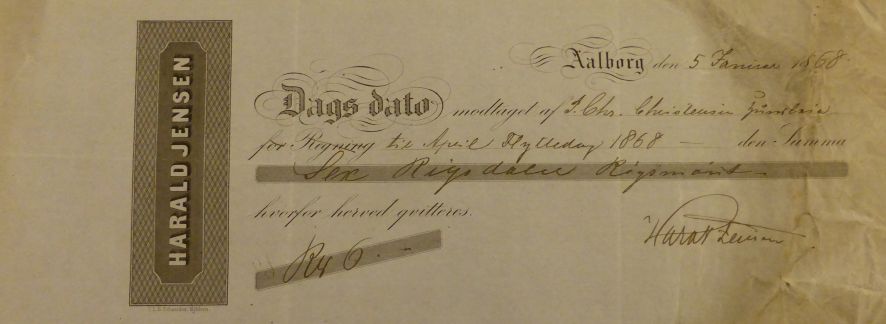 HARALD JENSEN
Aalborg den 5 Januar 1868
Dags dato modtaget af J. Chr. Christensen
for Regning til April Flyttedag 1868 — den Summa
Sex Rigsdaler Rigsmönt
hvorfor herved qvitteres.
Harald Jensen
6 -